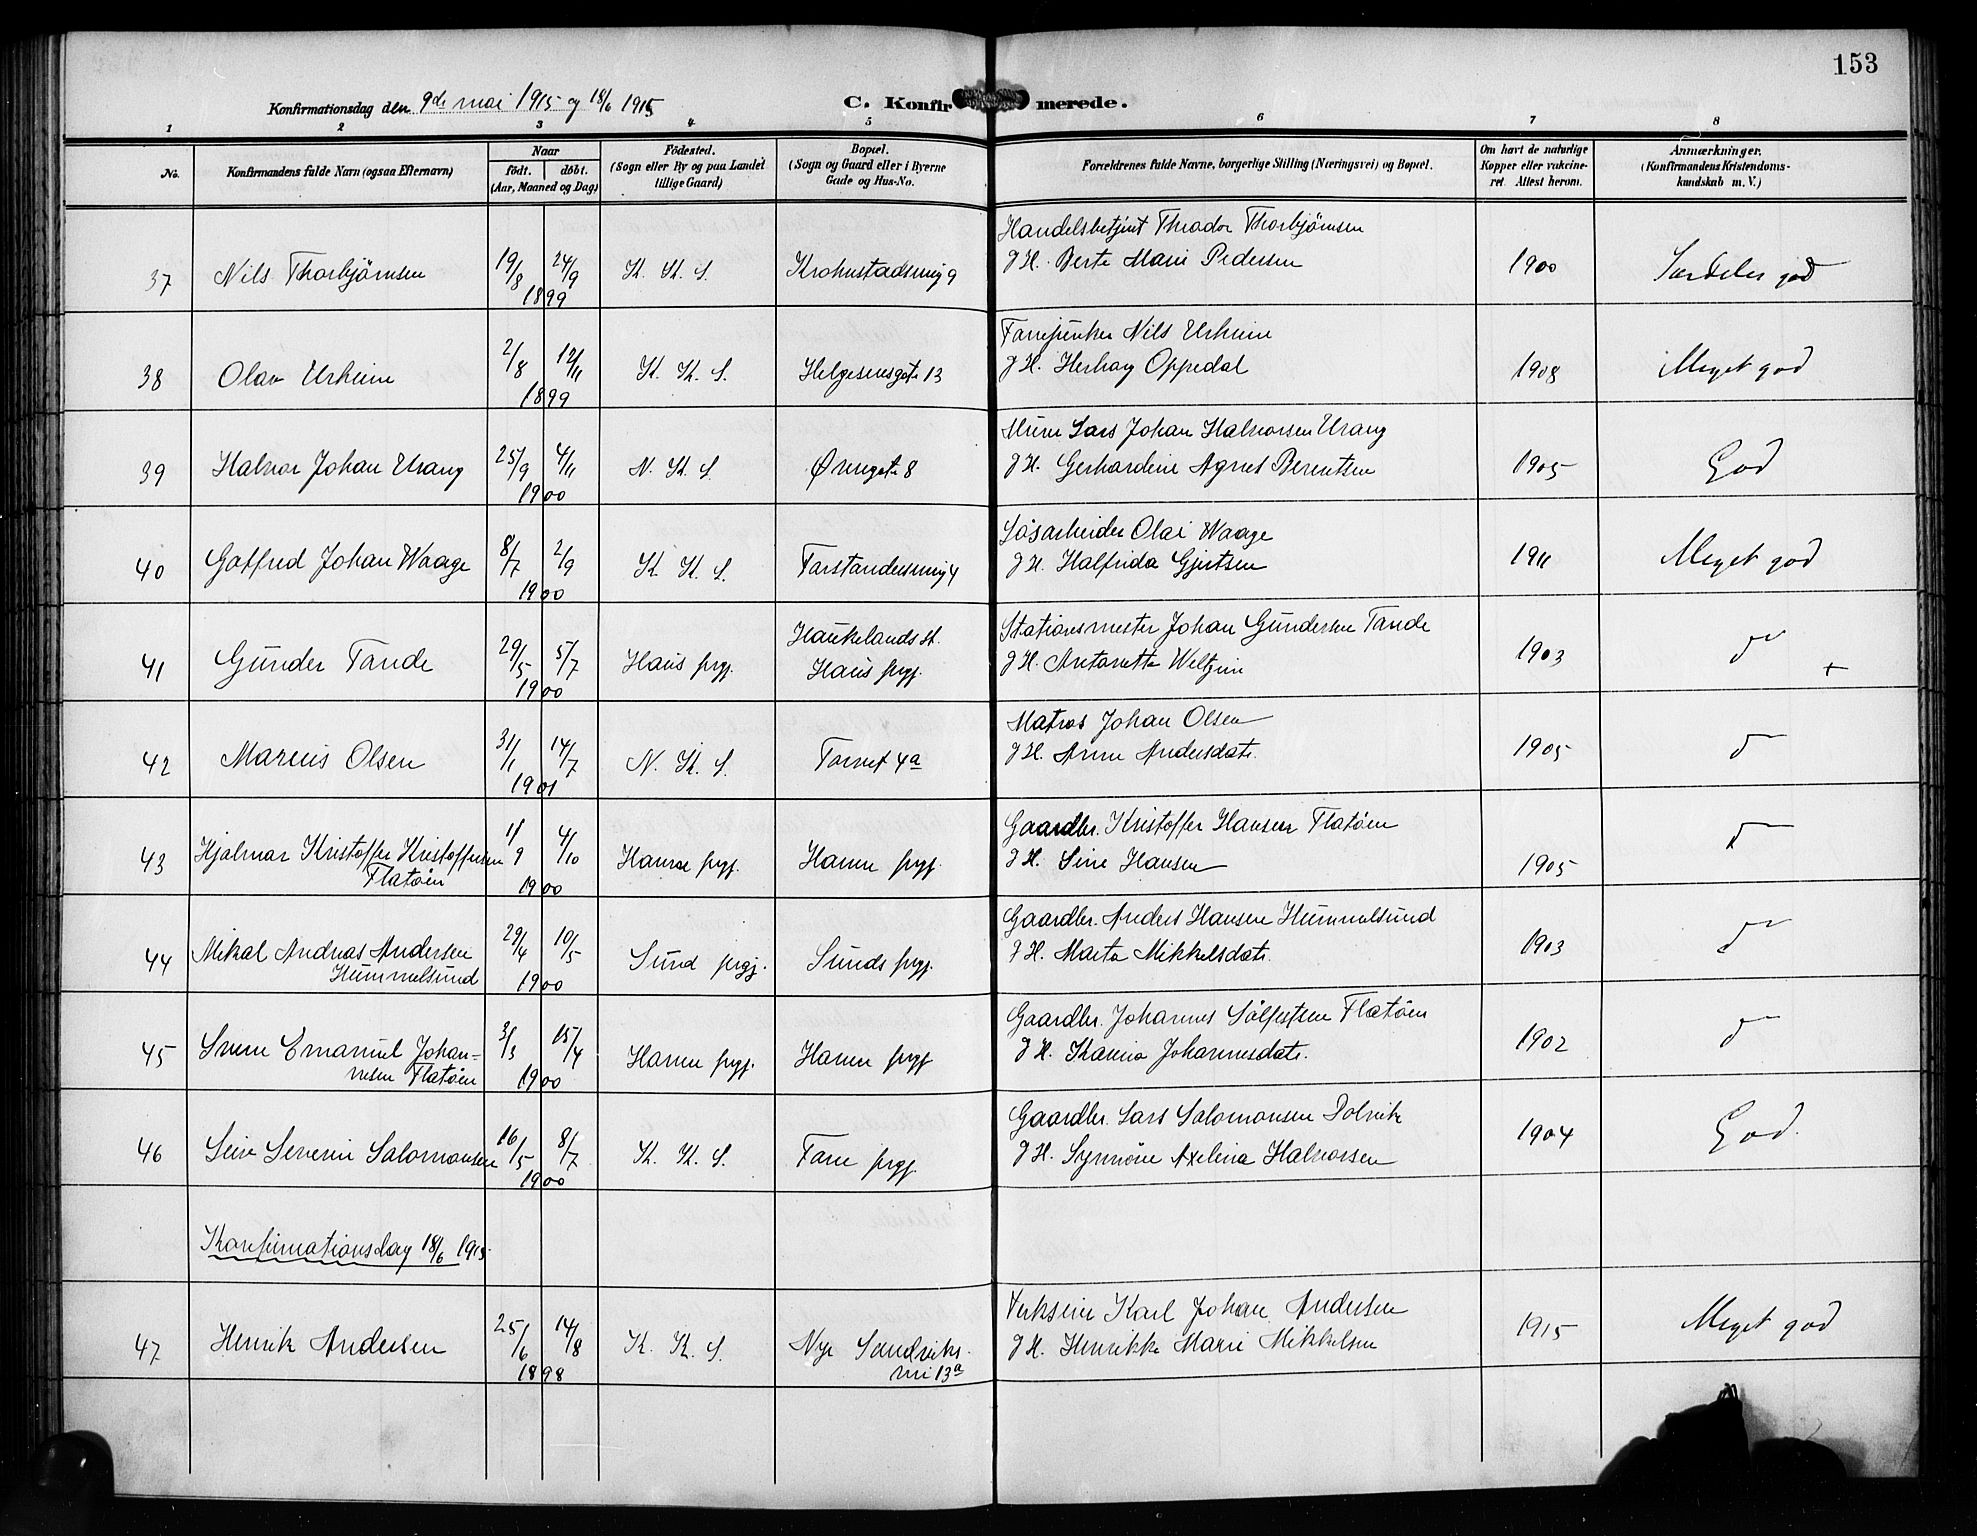 153
Konfirmationsdag den 9de mai 1915 og 18/6 1915
C. Konfirmerede.
1 2 3 4 5 6 7 8
No.
Konfirmandens fulde Navn (ogsaa Efternavn)
Naar
født. døbt.
(Aar, Maaned og Dag)
Födested.
(Sogn eller By og paa Landet
tillige Gaard)
Bopæl.
(Sogn og Gaard eller i Byerne
Gade og Hus-No.
Forældrenes fulde Navne, borgerlige Stilling (Næringsvei) og Bopæl.
Om havt de naturlige
Kopper eller vakcine-
ret Attest herom.
Anmærkninger.
(Konfirmandens Kristendoms-
kundskab m. V.)
Handelsbetjent Theodor Thorbjörnsen
37 Nils Thorbjörnsen 19/8 24/9 K. K. S. Krohnstadsvei 9 g H. Berte Marie Pedersen 1900 Særdeles god
1899
Nils Urheim
38 Olav Urheim 2/8 12/11 K. K. S. Helgesensgate 13 g H. Oppedal 1908 Meget god
1899
Lars Johan Halvorsen Urang
39 Halvor Johan Urang 25/9 4/11 N. K. S. Øvregate 8 g H. Gerhardine Agnes Berentsen 1905 God
1900
Løsarbeider Olai Waage
40 Gotfred Johan Waage 8/7 2/9 K. K. S. g H. Halfrida Gjertsen 1911 Meget god
1900
Stationsmester Johan Gundersen Tande
Haukelands st.
41 Gunder Tande 29/5 5/7 Haus prgj. Haus prgj. g H. Antonette Weltzin 1903 d +
1900
Matros Johan Olsen
42 Marius Olsen 31/1 14/7 N. K. S. Torvet 4a g H. Anne Andersdatr. 1905 d
1901
Gaardbr. Kristoffer Hansen Flatöen
43 Hjalmar Kristoffer Kristoffersen 1/9 4/10 Hamre prgj. Hamre prgj. g H. Sine Hansen 1905 d
Flatöen 1900
Gaardbr. Anders Hansen Hummelsund
44 Mikal Andreas Andersen 29/4 10/5 Sund prgj. Sunds prgj. g H. Marta Mikkelsdatr. 1903 d
Hummelsund 1900
Gaardbr. Johannes Sölfestsen Flatöen
45 Emanuel Johan= 3/3 15/4 Hamre prgj. Hamre prgj. g H. Johannesdatr. 1902 d
nesen Flatöen 1900
Gaardbr. Lars Salomonsen Dolvik
46 Severin Salomonsen 16/5 8/7 K. K. S. Fane prgj. g H. Synnöve Axelina Halvorsen 1904 God.
1900
Konfirmationsdag 18/6 1915
Karl Johan Andersen
47 Henrik Andersen 25/6 14/8 K. K. S. Nye Sandviks- g H. Henrikke Marie Mikkelsen 1915 Meget god
1898 vei 13a